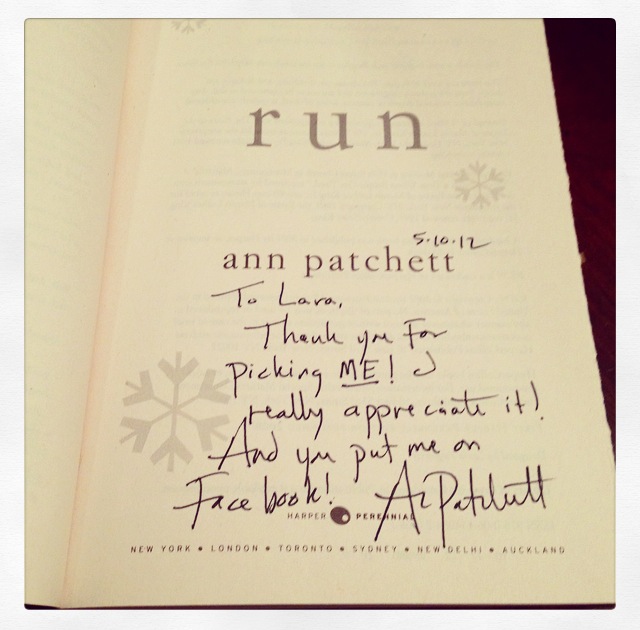 run
5.10.12
ann patchett
To Lara,
Thank you For
picking ME! I
really appreciate it!
And you put me on
Facebook! An Patchett
HARPER PERENNIAL
NEW YORK • LONDON • TORONTO • SYDNEY • NEW DELHI • AUCKLAND